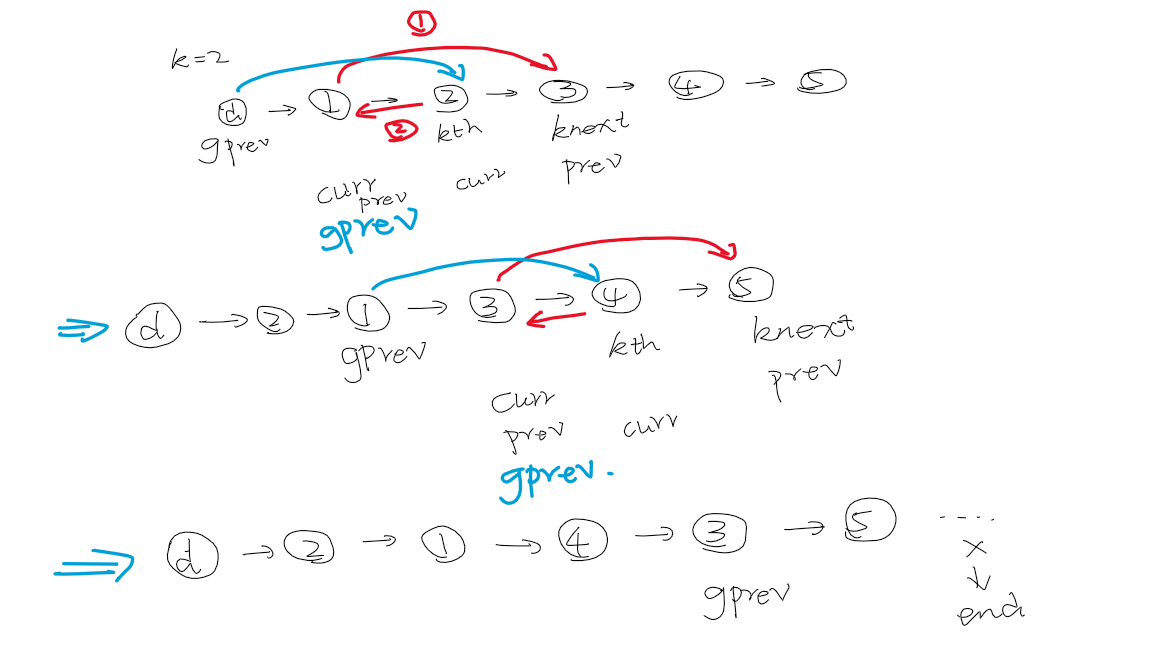 ①
k=2
d → 1 → 2 → 3 → 4 → 5
②
gprev kth knext
curr curr prev
prev
gprev
⇒ d → 2 → 1 → 3 → 4 → 5
gprev kth knext
prev
curr
prev curr
gprev.
⇒ d → 2 → 1 → 4 → 3 → 5 .....
x
↓
gprev end